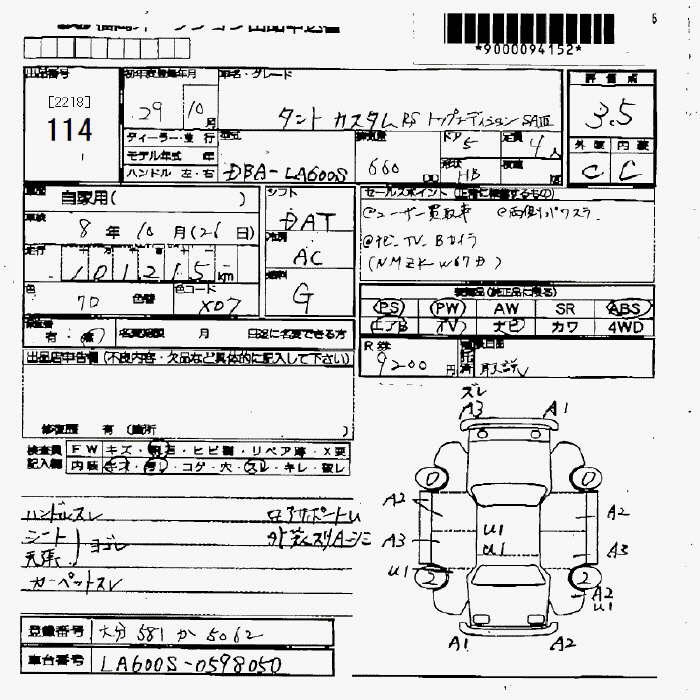 *9000094152*
出品番号 初年度登録年月 車名・グレード 評価点
[2218]
114
29 10月 タント カスタムRS トップエディション SAⅢ 3.5
ディーラー・並行 型式 排気量 ドア 定員 外装 内装
モデル年式 年 5 4人
ハンドル 左・右 DBA-LA600S 660 形状 HB 積載 C C
自家用( ) シフト セールスポイント
車検 8年 10月(26日) DAT ◎ユーザー買取車 ◎両側パワスラ
走行 冷房 AC ◎ナビ TV Bカメラ
101215km (NMZK-W67D)
色 70 色替 色コード X07 燃料 G
装備品(純正品に限る)
PS PW AW SR ABS
エアB TV ナビ カワ 4WD
有・無 名変期限 月 日迄に名変できる方
R券 9200円 取説
出品店申告欄(不良内容・欠品など具体的に記入して下さい)
修復歴 有(箇所 )
ズレ
A3 A1
検査員 FW キズ・飛石・ヒビ割・リペア跡・X要
記入欄 内装 キズ・汚レ・コゲ・穴・スレ・キレ・破レ
0 0
A2 A2
ハンドルスレ ロアサポートU
シート ヨゴレ 外装スリA-シミ
天張
U1
U1
A3 A3
カーペットスレ
U1 2 2 A2
U1
登録番号 大分 581 か 5062
A1 A2
車台番号 LA600S-0598050